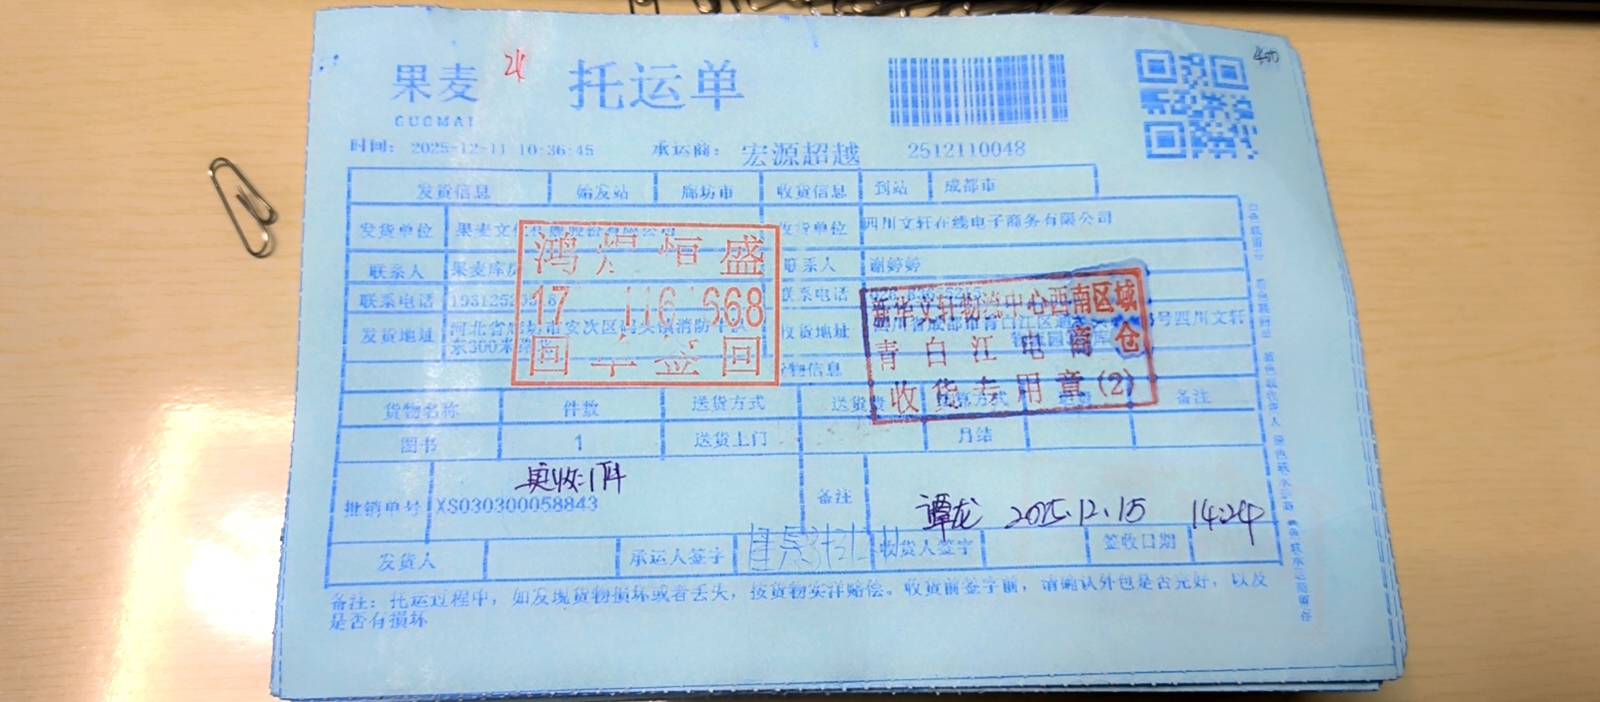 果麦 托运单
GUOMAI
时间: 2025-12-11 10:36:45 承运商: 宏源超越 2512110048
发货信息 始发站 廊坊市 收货信息 到站 成都市
发货单位 果麦文化 收货单位 四川文轩在线电子商务有限公司
联系人 果麦库房 联系人 谢婷婷
联系电话 联系电话
发货地址 河北省廊坊市安次区码头镇消防 收货地址 四川省成都市青白江区 号四川文轩
东300米 物流园
货物信息
货物名称 件数 送货方式 送货费 结算方式 备注
图书 1 送货上门 月结
实收:1件
批销单号 XS030300058843 备注
谭龙 2025.12.15 14:24
发货人 承运人签字 收货人签字 签收日期
备注: 托运过程中, 如发现货物损坏或者丢失, 按货物实洋赔偿。收货前签字前, 请确认外包是否完好, 以及
是否有损坏
鸿 恒盛
17 116 668
回单 回
新华文轩物流中心西南区域
青白江电商仓
收货专用章(2)